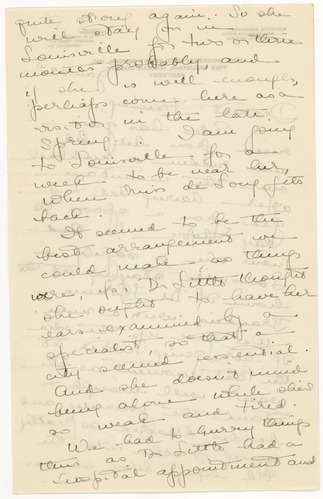 quite strong again. So she
will stay on in
Louisville for two or three
months probably, and
if she is well enough,
perhaps come here as a
visitor in the late
Spring. I am going
to Louisville for a
week - to be near her,
when Miss de Long gets
back.
It seemed to be the
best arrangement we
could make as things
were, for Dr. Little thought
she ought to have her
ears examined by a
specialist, so that a
city seemed essential.
And she doesn't mind
being alone while she's
so weak and tired.
We had to hurry things
thus as Dr. Little had a
hospital appointment and